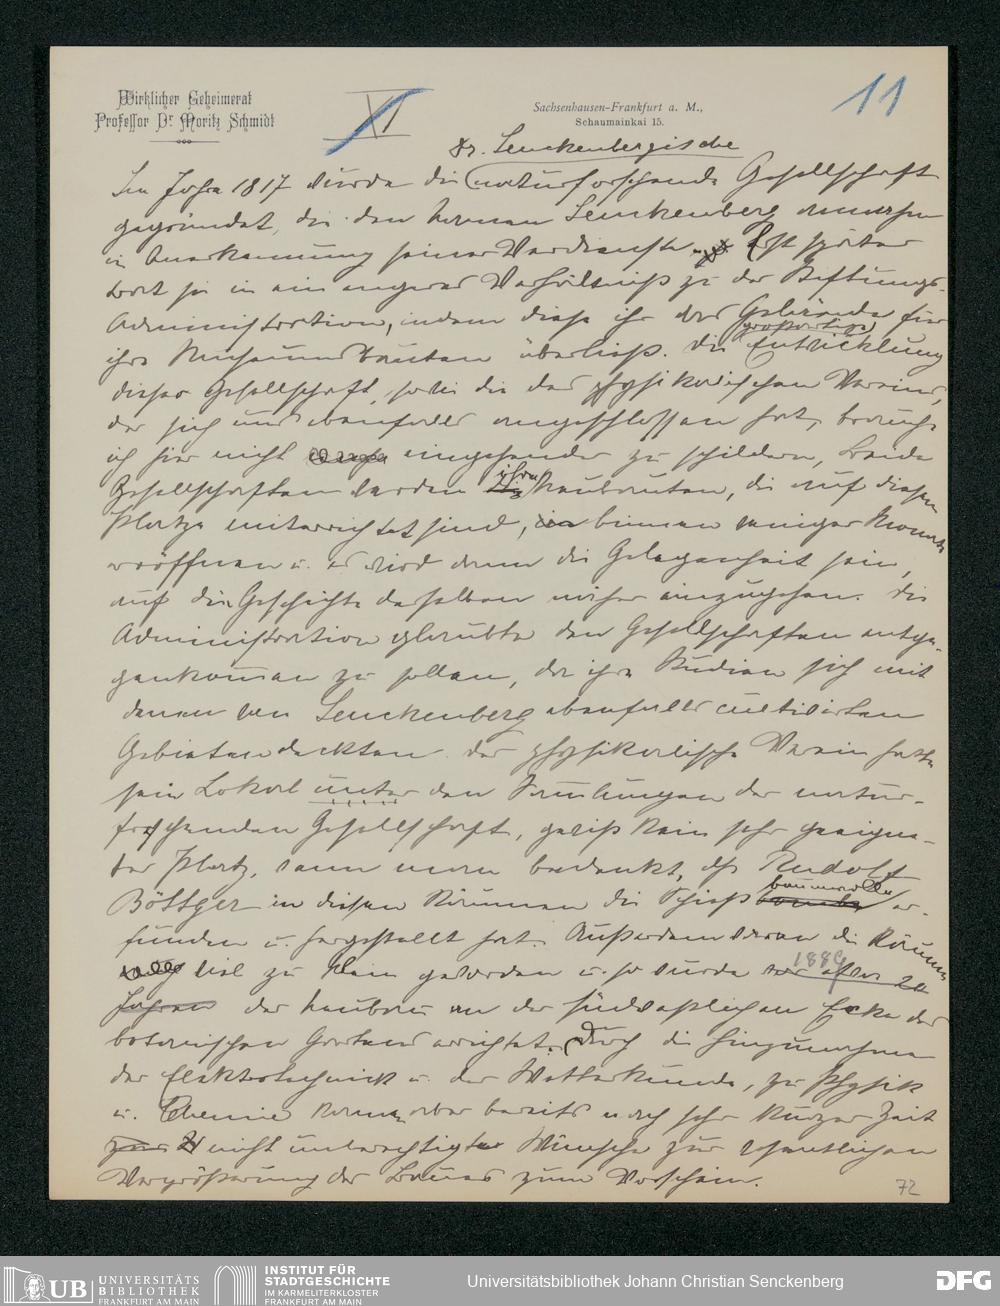 Wirklicher Geheimerat
Professor Dr Moritz Schmidt
XI
Sachsenhausen-Frankfurt a. M.,
Schaumainkai 15.
11
Dr. Senckenbergische
Im Jahre 1817 wurde die (naturforschende Gesellschaft
gegründet, die den Namen Senckenberg annahm
in Anerkennung seiner Verdienste. Erst später
trat sie in ein engeres Verhältniß zu der Stiftungs-
Administration, indem diese ihr das Gelände für
ihre Museumsbauten überließ. Die Entwicklung
großartige
dieser Gesellschaft, sowie die des physikalischen Vereins,
der sich uns ebenfalls angeschlossen hat, brauche
ich hier nicht eingehender zu schildern, beide
Gesellschaften werden ihre Neubauten, die auf diesem
Platze miterrichtet sind, in binnen weniger Monate
eröffnen u. es wird dann die Gelegenheit sein,
auf die Geschichte derselben näher einzugehen. Die
Administration glaubte den Gesellschaften entge-
genkommen zu sollen, da ihre Studien sich mit
denen von Senckenberg ebenfalls cultivirten
Gebieten deckten. Der physikalische Verein hatte
sein Lokal unter den Sammlungen der natur-
forschenden Gesellschaft, gewiß kein sehr geeigne-
ter Platz, wenn man bedenkt, daß Rudolf
Böttger in diesen Räumen die Schießbaumwolle er-
funden u. hergestellt hat. Außerdem waren die Räume
viel zu klein geworden u. so wurde vor etwa 20
1889
Jahren der Neubau an der südwestlichen Ecke des
botanischen Gartens errichtet. Durch die Hinzunahme
der Elektrotechnick u. der Wetterkunde, zu Physik
u. Chemie kamen aber bereits nach sehr kurzer Zeit
nicht unberechtigte Wünsche zur wesentlichen
Vergrößerung des Baues zum Vorschein.
72
UB UNIVERSITÄTS
BIBLIOTHEK
FRANKFURT AM MAIN
INSTITUT FÜR
STADTGESCHICHTE
IM KARMELITERKLOSTER
FRANKFURT AM MAIN
Universitätsbibliothek Johann Christian Senckenberg
DFG